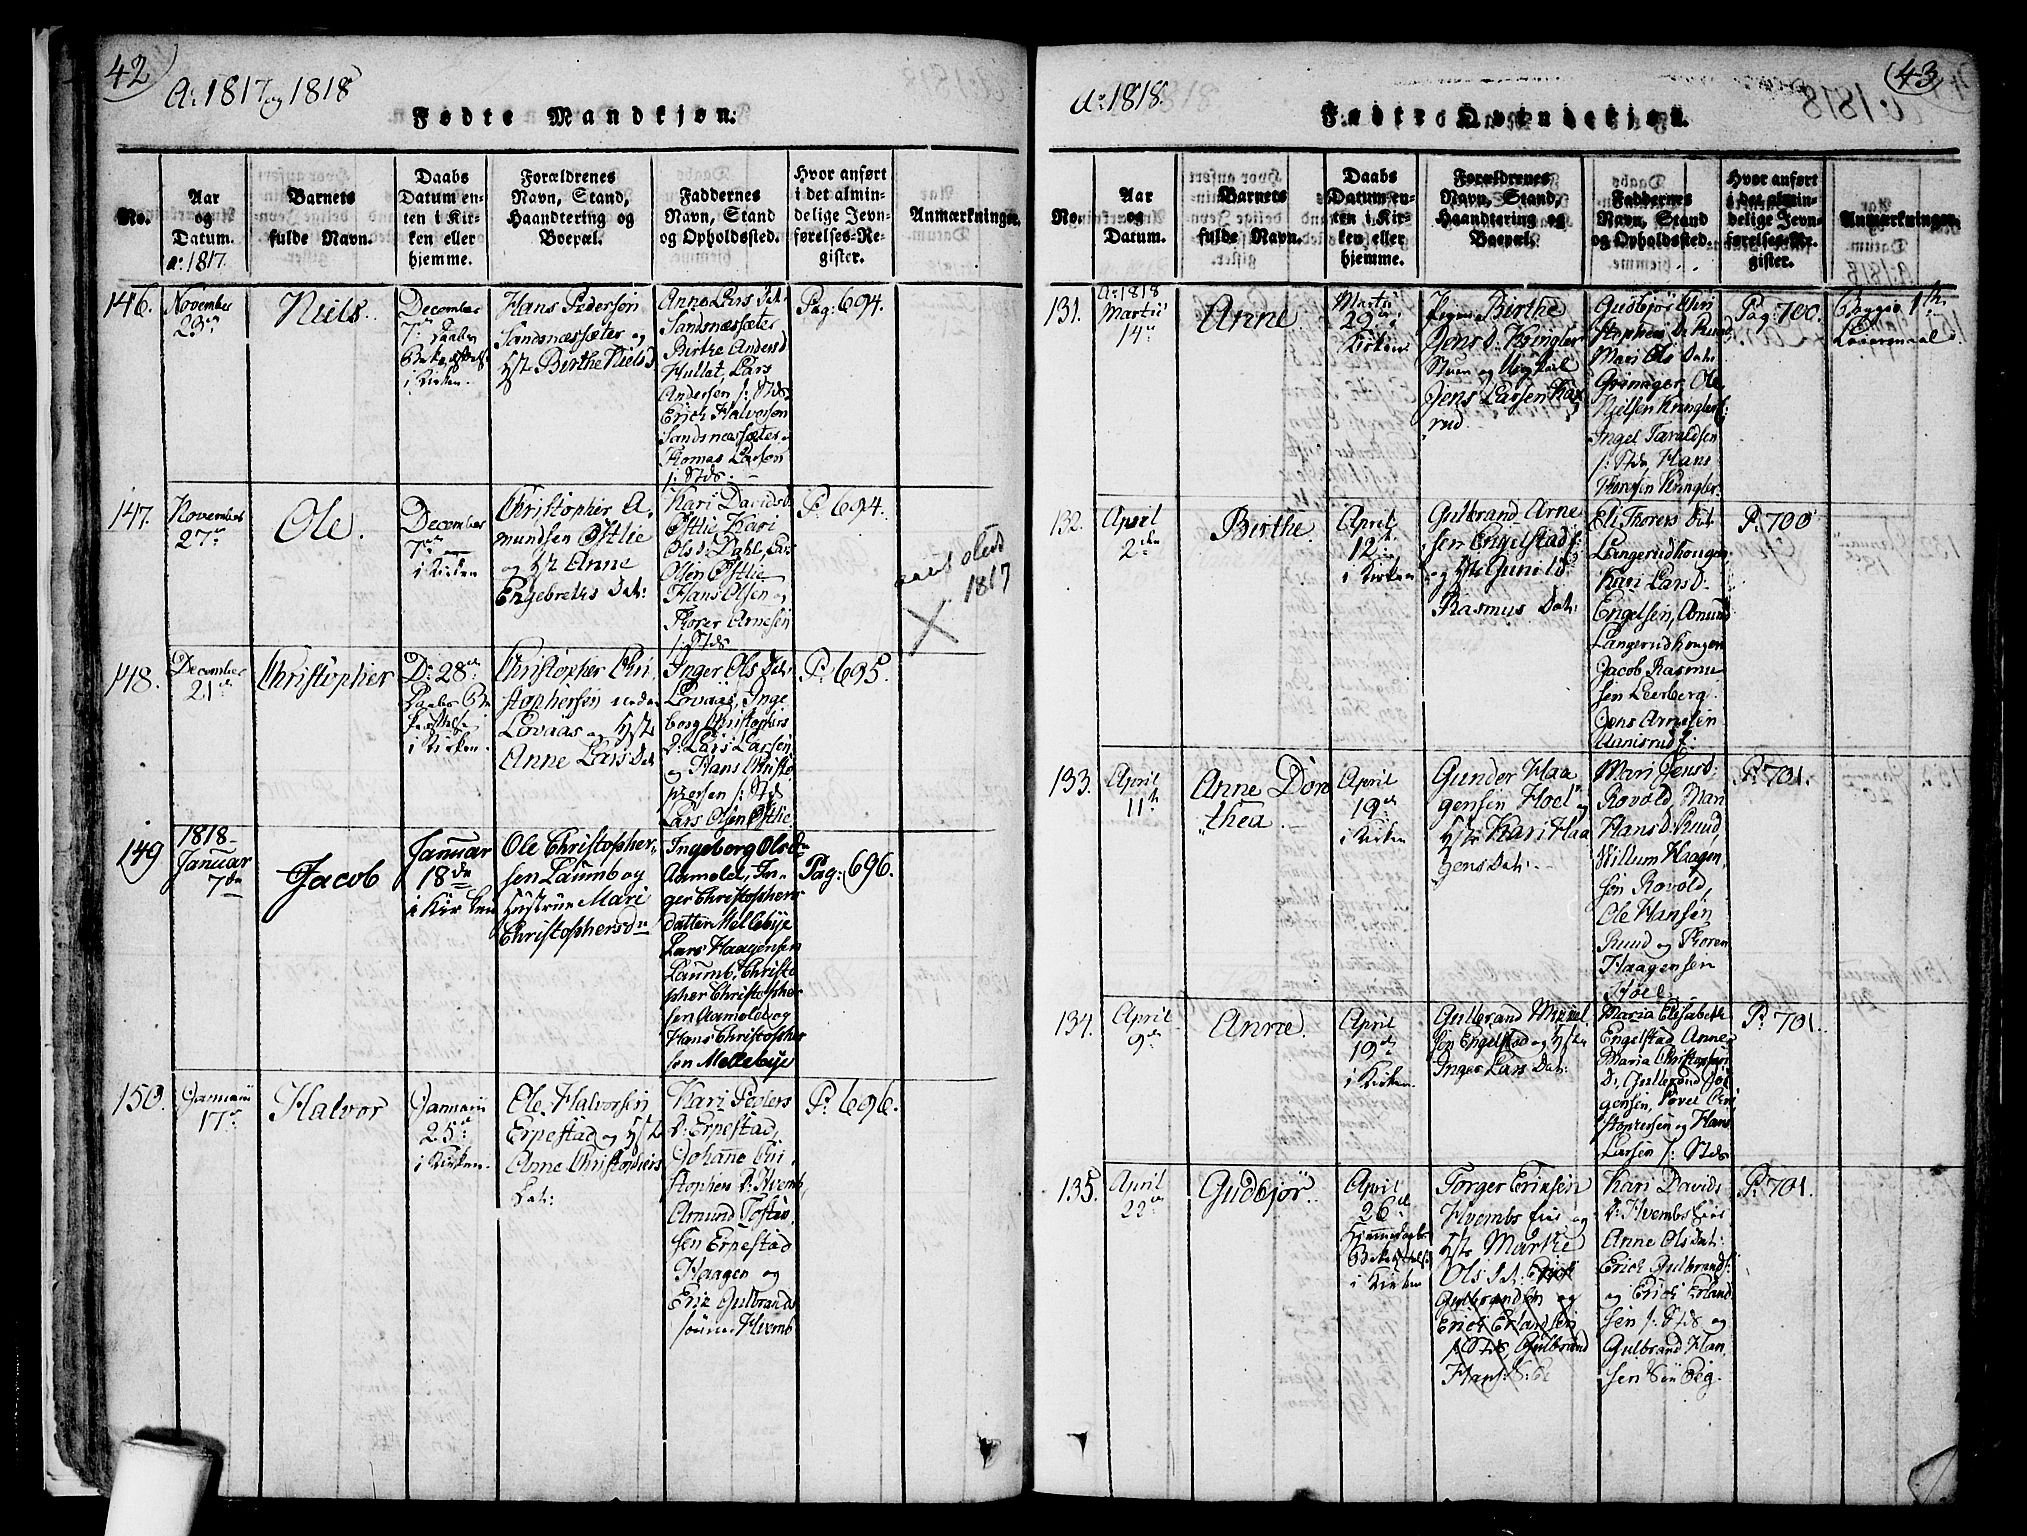 42
Ao: 1817 og 1818
Fødte Mandkjøn.
No.
Aar
og
Datum.
Ao: 1817.
Barnets
fulde Navn.
Daabs
Datum en-
ten i Kir-
ken eller
hjemme.
Forældrenes
Navn, Stand,
Haandtering og
Boepæl.
Faddernes
Navn, Stand
og Opholdssted.
Hvor anført
i det almin-
delige Jevn-
førelses-Re-
gister.
Anmærkninger.
146.
November
23de
Niels.
December
7de Daabs
i Kirken.
Hans Pedersøn
Sandsnæssæter og
Hst. Birthe Niels D
Anne Lars Dat:
Sandsnæssæter
Birthe Anders D
Hullat, Lars
Andersen j: Stds
Erich Halvorsøn
Sandsnæssæter
Thomas Larsøn
j: Stds.
Pag: 694.
147.
November
27de
Ole.
December
7de
i Kirken
Christopher A,
mundsen Østlie
og Hst Anne
Engebrets Dat:
Kari Davids D
Østlie Kari
Ols D: Dahl, Lars
Olsen Østlie
Hans Olsen og
Thorer Arnesøn
j: Stds
P: 694.
1817
148.
December
21de
Christopher
D: 28de
Daabs Be
kræftelse
i Kirken.
Christopher Chri
stophersøn
Lovaas og Hst
Anne Lars Dat
Inger Ols Dat
Lovaas, Inge
borg Christophers
D: Lars Larsen
og Hans Christo
phersen j: Stds
Lars Olsen Østlie
P: 695.
149
1818
Januar
7de
Jacob
Januar
18de
i Kirken
Ole Christopher-
sen Laumb og
Hustrue Mari
Christophersdr
Ingeborg Olsdr
Aamolet, In-
ger Christophers
datter Mellebye
Lars Haagensen
Laumb, Christo
pher Christopher
sen Aamolet og
Hans Christopher
sen Mellebye
Pag: 696.
150.
Januarii
17de
Halvor
Januarii
25de
i Kirken.
Ole Halvorsen
Erpestad og Hst
Anne Christophers
Dat:
Kari Peders
D: Erpestad,
Johanne Chri
stophers D: Hvemb,
Amund Tosten
sen Erpestad
Haagen og
Eric Gulbrands
sønner Hvemb
P: 696.
43
Ao: 1818.
Fødte Qvindekjøn.
No.
Aar
og
Datum.
Barnets
fulde Navn.
Daabs
Datum en-
ten i Kir-
ken eller
hjemme.
Forældrenes
Navn, Stand,
Haandtering og
Boepæl.
Faddernes
Navn, Stand
og Opholdssted.
Hvor anført
i det almin-
delige Jevn-
førelses-Re-
gister.
Anmærkninger.
131.
Ao: 1818
Martii
14de
Anne
Martii
29de i
Kirken
Pigen Birthe
Jens D. Kringler
Stuen og Ungkarl
Jens Larsen
rud
Gudbjør Chri
stophers D: Ruud,
Mari Ols Dat:
Grimager, Ole
Nielsen Kringler
Ingel Taraldsen
j: Stds, Hans
Thoresen Kringler
Pag: 700.
132.
April
2den
Birthe
April
12te
i Kirken
Gulbrand Arne
sen Engelstad
og Hst Gunild
Rasmus Dat:
Eli Thorers Dat
Langerudhougen
Kari Lars D.
Engelsen, Amund
Langerudhougen
Jacob Rasmu
sen Leerberg
Jens Arnesen
P: 700
133.
April
11te
Anne Doro
thea
April
19de
i Kirken
Gunder Haa
gensen Hoel og
Hst Kari Haa
gens Dat:
Mari Jens D:
Rovold, Mari
Hans D. Ruud,
Willum Haagen,
sen Rovold,
Ole Hansen
Ruud og Thoren
Haagensen
Hoel
P: 701.
134.
April
9de
Anne
April
19de
i Kirken
Gulbrand Mikkel
sen Engelstad og Hst
Inger Lars Dat:
Maria Elisabeth
Engelstad Anne
Maria Christophers
D, Gulbrand Jør
gensen, Povel Chri
stophersen og Hans
Larsen j: Stds
P: 701.
135.
April
22de
Gudbjør.
April
26de
Hjemmedaabs
Bekræftelse
i Kirken
Torger Erichsen
Hvembs Eie og
Hst Marthe
Ols Dat: Erich
Gulbrandsen og
Erich Erlandsen
j: Stds, Gulbrand
Hans:
Kari Davids
D: Hvembs Eie
Anne Ols Dat:
Erich Gulbrands:
og Erich Erland
sen j: Stds og
Gulbrand Han
sen
P: 701.